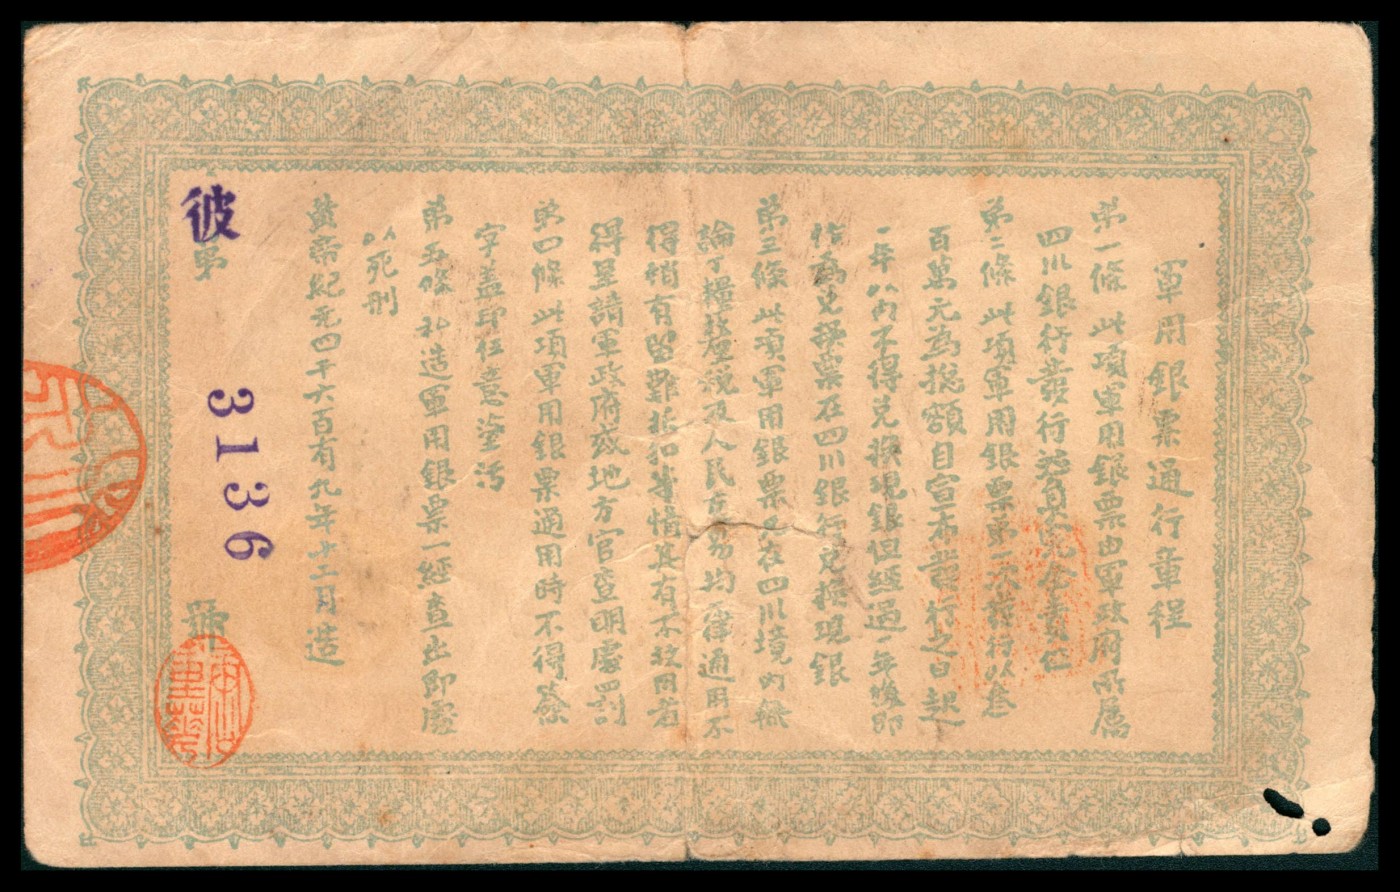 軍用銀票通行章程
第一條 此項軍用銀票由軍政府所屬
四川銀行發行並負完全責任
第二條 此項軍用銀票第一次發行以叁
百萬元為総額自宣布發行之日起
一年以內不得兌換現銀但經過一年後即
作為兌換票在四川銀行兌換現銀
第三條 此項軍用銀票凡在四川境內無
論丁糧釐稅及人民交易均一律通用不
得稍有留難折扣等情其有不放用者
得呈請軍政府或地方官查明處罰
第四條 此項軍用銀票通用時不得簽
字蓋印任意塗污
第五條 私造軍用銀票一經查出即處
以死刑
黃帝紀元四千六百有九年十二月造
彼第 3136 號